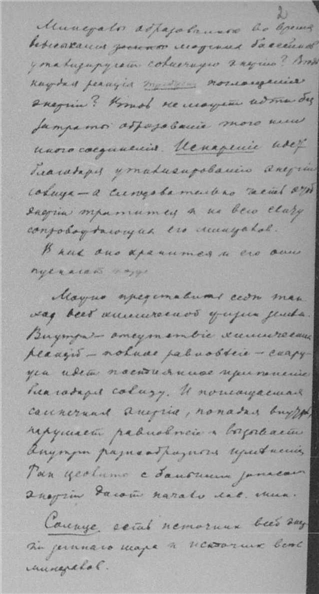 2
Минералы образованные во время
высыхания замкн морских бассейнов
утилизируют солнечную энергию? Вт
каждая реакция требует поглощения
энергии? Втов не может идти без
затраты образование того или
иного соединения. Испарение идет
благодаря утилизированию энергии
солнца – а следовательно часть этой
энергии тратится и на всю свиту
сопровождающих его минералов.
В них она хранится и его они
пускают
Можно представить себе так
ход всей химической жизни земли.
Внутри – отсутствіе химических
реакцій – полное равновѣсіе – снару
жи идет постоянное изменение
благодаря солнцу. И поглощаемая
солнечная энергія, попадая внутрь,
нарушает равновѣсіе и вызывает
внутри разнообразныя измѣненія.
Так цеолиты с большим запасом
энергіи дают начало
Солнце есть источник всей энер
гіи земнаго шара и источник всех
минералов.